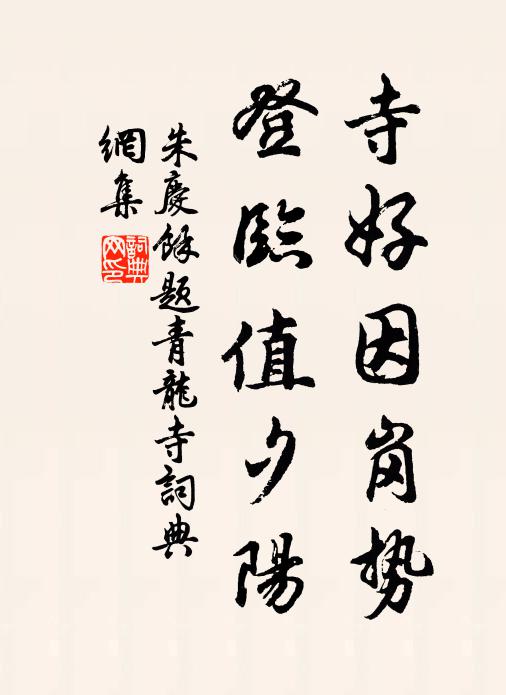 寺好因岗势
登臨值夕陽
朱慶餘題青龍寺詞典
網集
詞典
网印